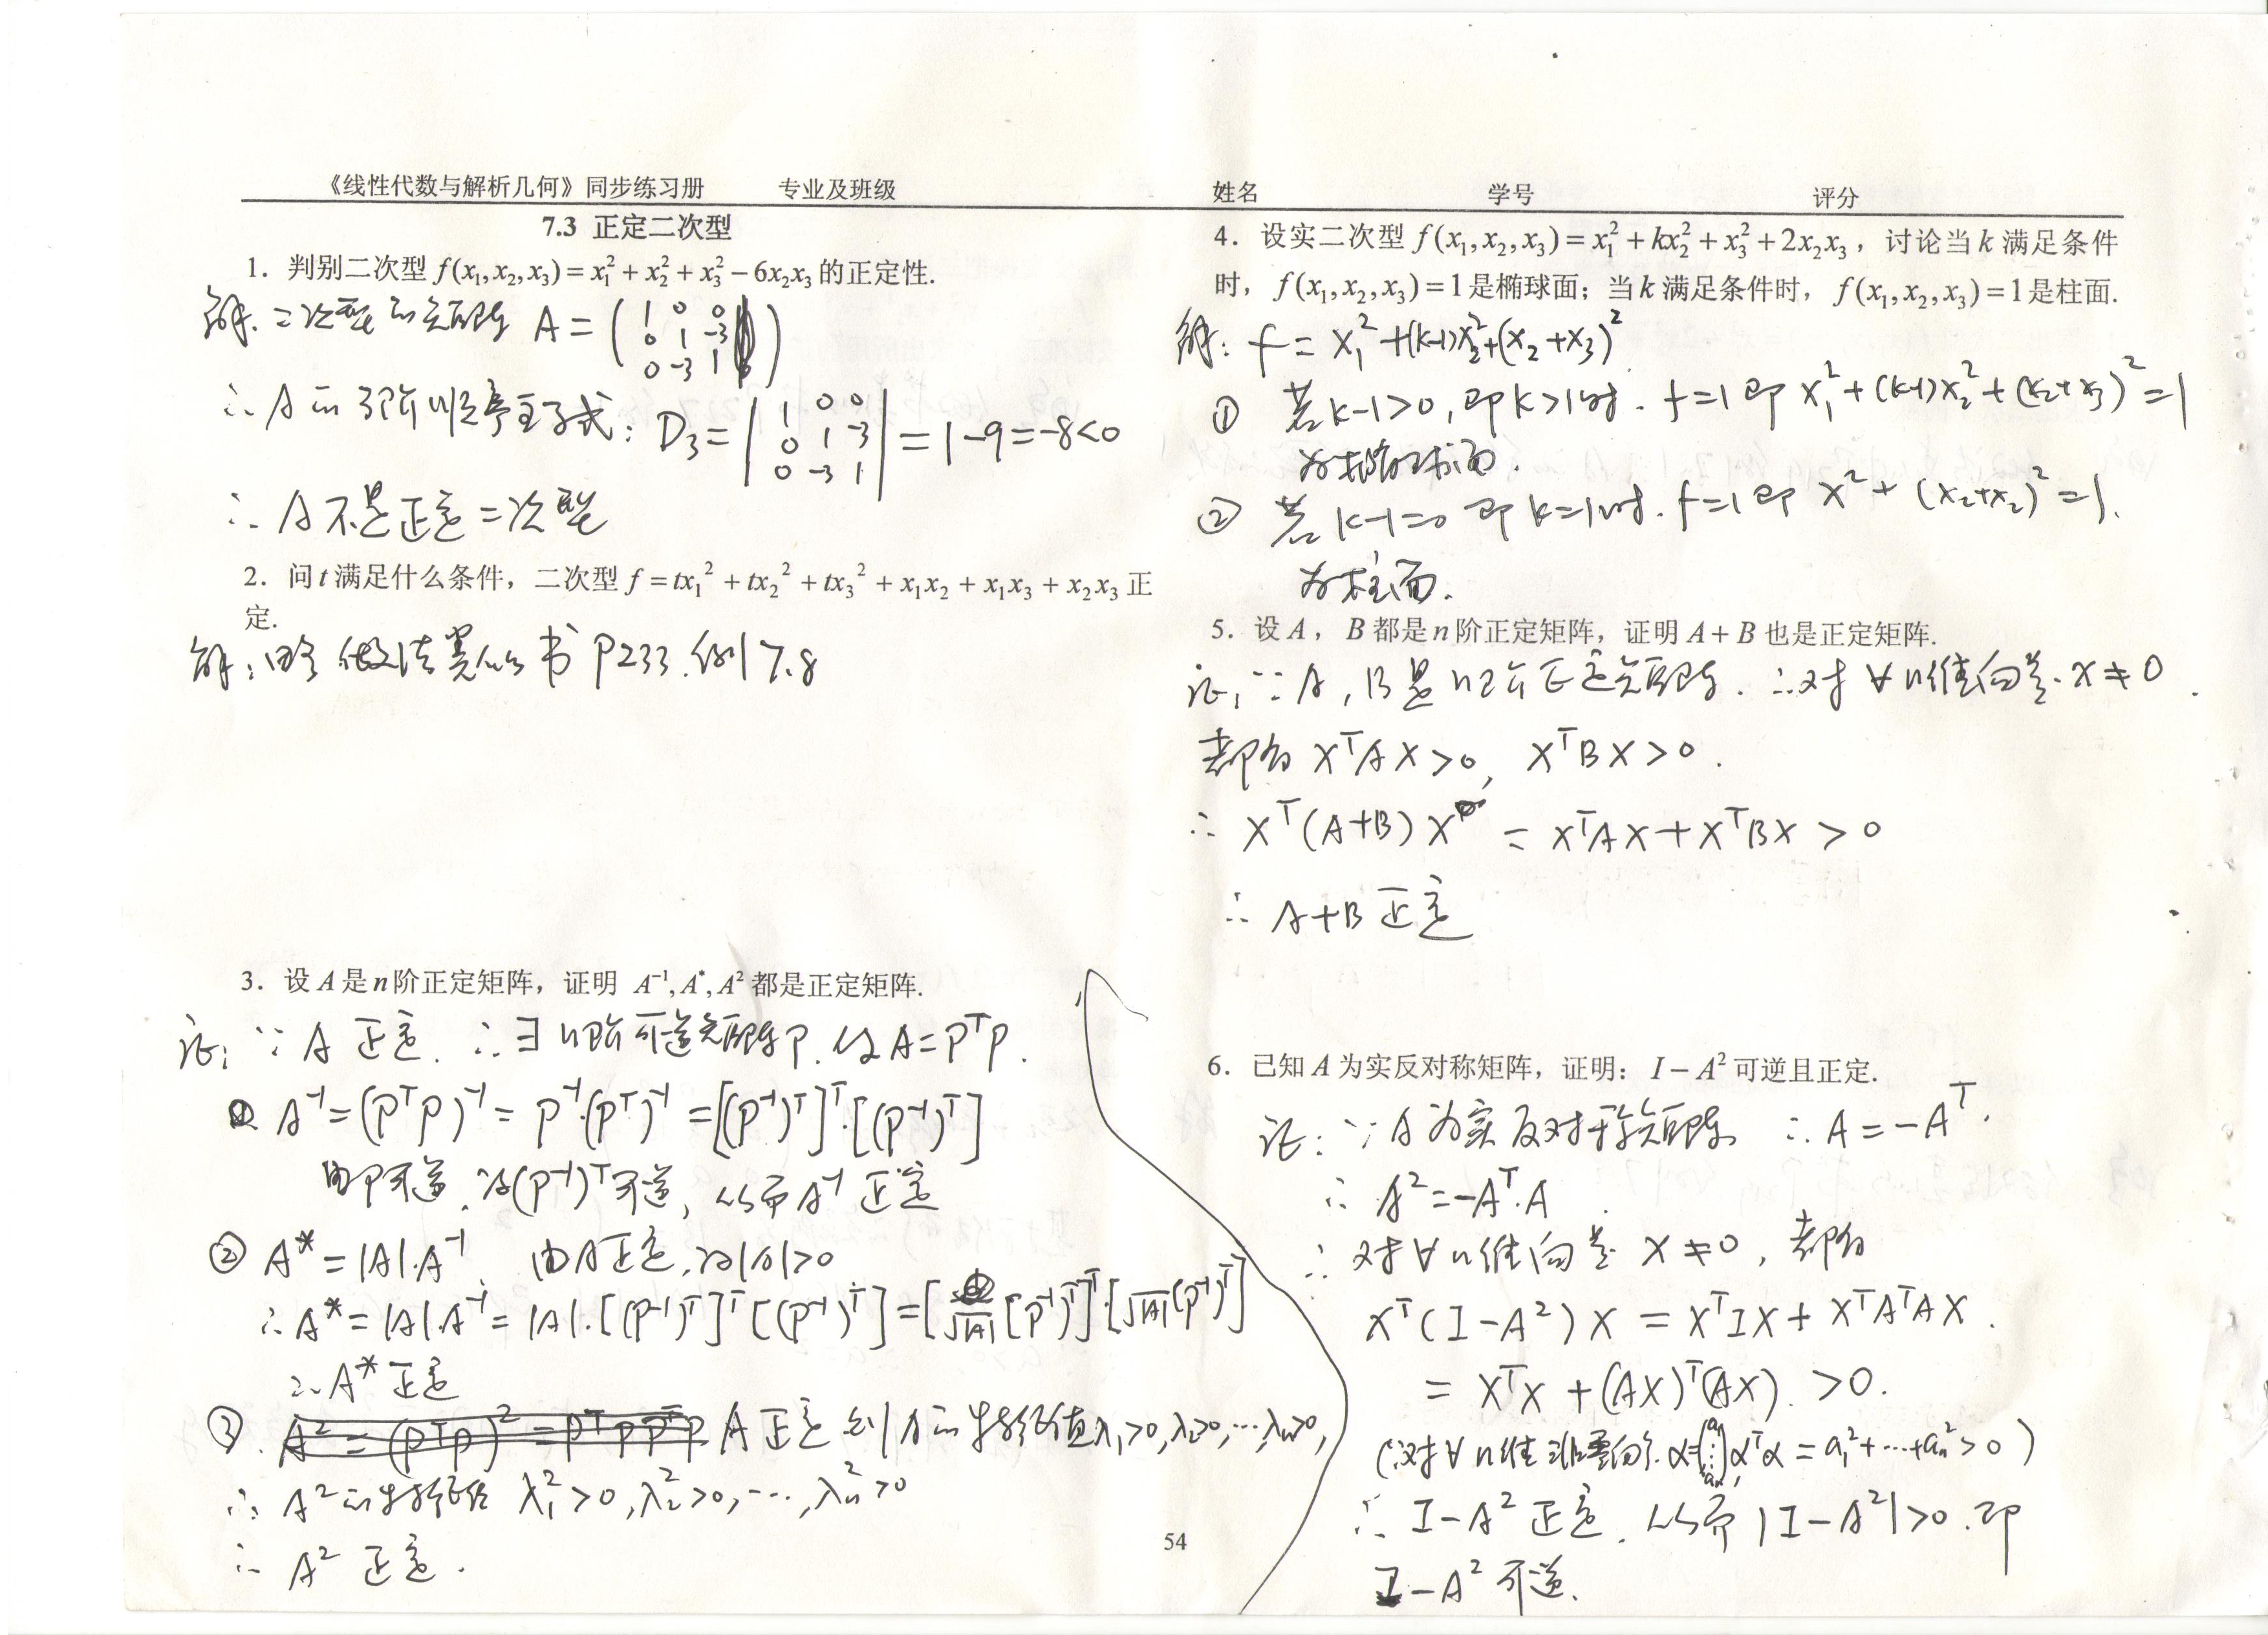 《线性代数与解析几何》同步练习册 专业及班级 姓名 学号 评分
7.3 正定二次型
1. 判别二次型 f(x₁,x₂,x₃)=x₁²+x₂²+x₃²−6x₂x₃的正定性.
解. 二次型的矩阵 A=(1 0 0
0 1 -3
0 -3 1)
∴A的3阶顺序主子式: D₃=|1 0 0
0 1 -3
0 -3 1|=1-9=-8<0
∴A不是正定二次型
2. 问t满足什么条件，二次型 f=tx₁²+tx₂²+tx₃²+x₁x₂+x₁x₃+x₂x₃正
定.
解:略 做法类似书P233.例7.8
3. 设A是n阶正定矩阵，证明 A⁻¹,A*,A²都是正定矩阵.
证: ∵A正定. ∴∃n阶可逆矩阵P.使A=PᵀP.
① A⁻¹=(PᵀP)⁻¹=P⁻¹·(Pᵀ)⁻¹=[(P⁻¹)ᵀ]ᵀ·[(P⁻¹)ᵀ]
由P可逆,故(P⁻¹)ᵀ可逆,从而A⁻¹正定
② A*=|A|·A⁻¹ 由A正定,故|A|>0
∴A*=|A|·A⁻¹=|A|·[(P⁻¹)ᵀ]ᵀ[(P⁻¹)ᵀ]=[√|A|[P⁻¹)ᵀ]ᵀ·[√|A|(P⁻¹)ᵀ]
∴A*正定
③. A²=(PᵀP)²=PᵀPPᵀP A正定 则A的特征值λ₁>0,λ₂>0,…,λₙ>0,
∴A²的特征值 λ₁²>0,λ₂²>0,…,λₙ²>0
∴A²正定.
4. 设实二次型 f(x₁,x₂,x₃)=x₁²+kx₂²+x₃²+2x₂x₃，讨论当k满足条件
时，f(x₁,x₂,x₃)=1是椭球面；当k满足条件时，f(x₁,x₂,x₃)=1是柱面.
解: f=x₁²+(k-1)x₂²+(x₂+x₃)²
① 若k-1>0,即k>1时. f=1即x₁²+(k-1)x₂²+(x₂+x₃)²=1
为椭球面.
② 若k-1=0即k=1时. f=1即x²+(x₂+x₂)²=1.
为柱面.
5. 设A，B都是n阶正定矩阵，证明A+B也是正定矩阵.
证: ∵A,B是n阶正定矩阵. ∴对∀n维向量X≠0.
都有XᵀAX>0, XᵀBX>0.
∴Xᵀ(A+B)X=XᵀAX+XᵀBX>0
∴A+B正定
6. 已知A为实反对称矩阵，证明：I−A²可逆且正定.
证: ∵A为实反对称矩阵 ∴A=-Aᵀ.
∴A²=-Aᵀ·A
∴对∀n维向量X≠0,都有
Xᵀ(I-A²)X=XᵀIX+XᵀAᵀAX.
=XᵀX+(AX)ᵀ(AX).>0.
(∵对∀n维非零向量α=(a₁⋮aₙ),αᵀα=a₁²+…+aₙ²>0)
∴I-A²正定.从而|I-A²|>0.即
I-A²可逆.
54